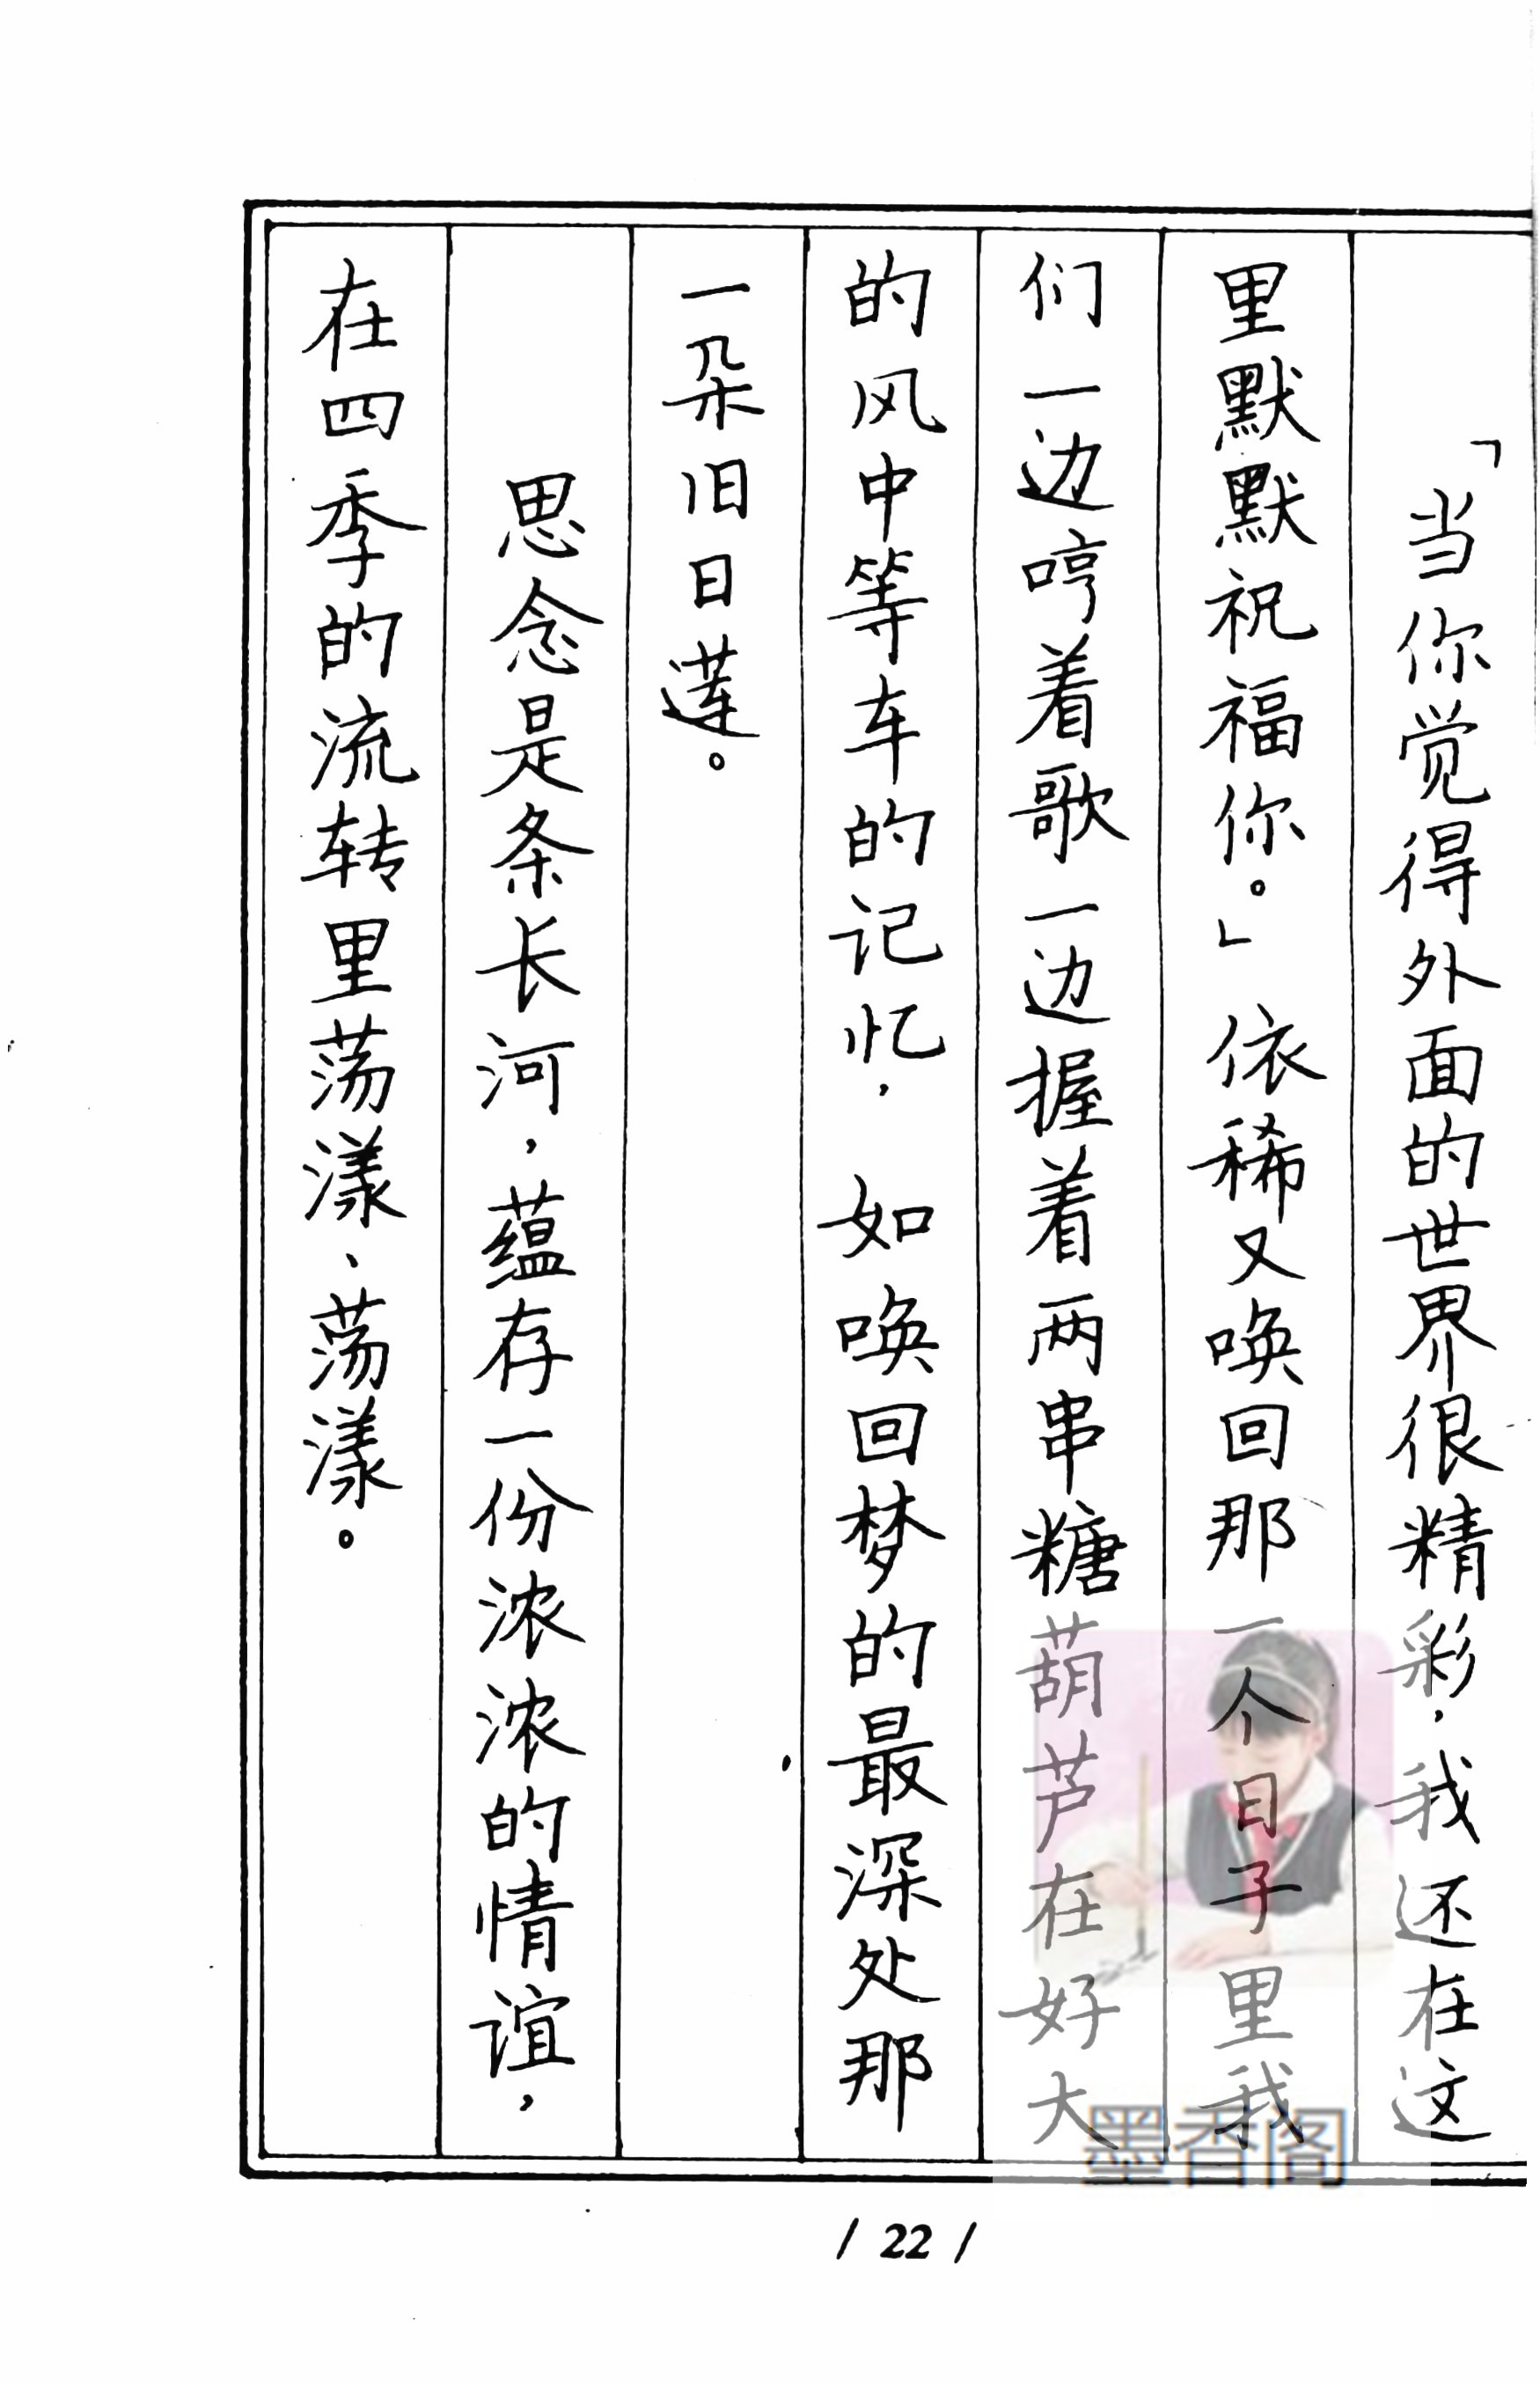 「当你觉得外面的世界很精彩，我还在这
里默默祝福你。」依稀又唤回那一个日子里我
们一边哼着歌一边握着两串糖葫芦在好大
的风中等车的记忆，如唤回梦的最深处那
一朵旧日莲。
思念是条长河，蕴存一份浓浓的情谊，
在四季的流转里荡漾、荡漾。
墨香阁
/ 22 /